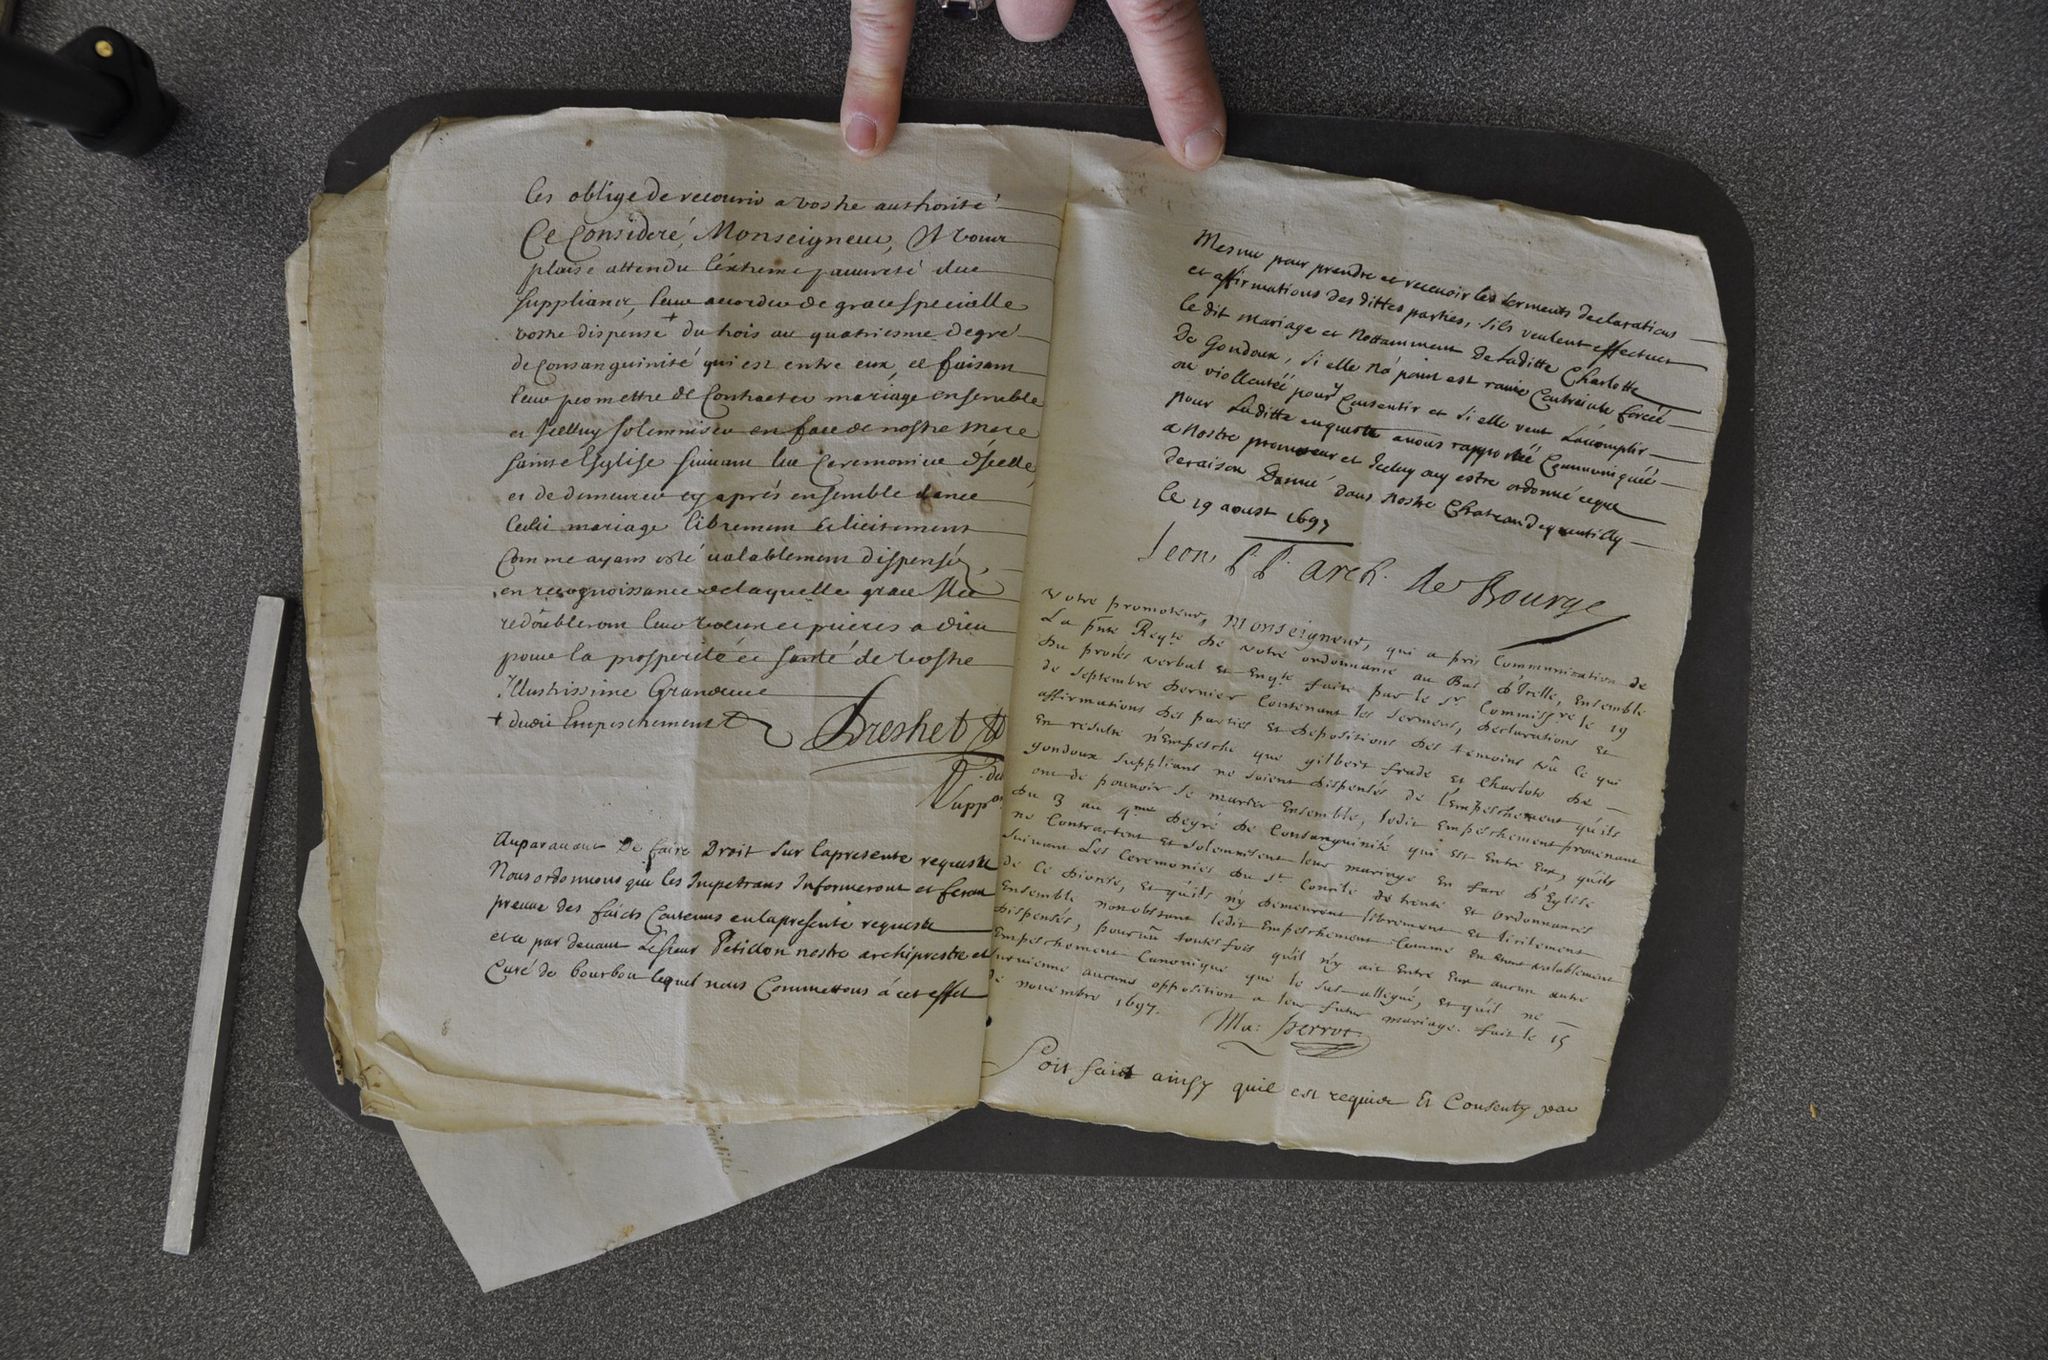 les oblige de recourir a vostre authorité
Ce Consideré, Monseigneur, Il vous
plaise attendu l'extreme pauvreté des
suppliants, leur accorder de grace specialle
vostre dispense + du trois au quatriesme degré
de Consanguinité qui est entre eux, ce faisant
leur permettre de Contracter mariage ensemble
et Icelluy solemniser en face de nostre mere
sainte Esglise suivant les Ceremonies d'Icelle,
et de demeurer cy aprés ensemble dans
ledit mariage librement et licitement
Comme ayans esté valablement dispensés,
en recognoissance de laquelle grace Ils
redoubleront leurs voeux et prieres a dieu
pour la prosperité et santé de vostre
Illustrissime Grandeur
+ dudit Empeschement
Breshet
P. des
supp.ns
Auparavant De faire Droit sur la presente requeste
Nous ordonnons que les Impetrans Informeront et feront
preuve des faicts Contenus en la presente requeste
et ce par devant Le sieur Petillon nostre archiprestre et
Curé de bourbon lequel nous Commettons á cet effet
Mesme pour prendre et recevoir les serments declarations
et affirmations des dittes parties, sils veulent effectuer
le dit Mariage et Nottamment de laditte Charlotte
De Gondoux, si elle n'a point est ravie Contrainte forcéé
ou viollentéé pour y Consentir et si elle veut L'acomplir
pour Laditte enqueste a nous rapportéé Communiquéé
a Nostre promoteur et Icelluy ouy estre ordonné ce que
de raison Donné dans Nostre Chateau de quentilly
le 19 aoust 1697
Leon P. P. Arch. de Bourge
Votre promoteur, Monseigneur, qui a pris Communication de
La pñte Reqte de votre ordonnance au Bas d'Icelle, Ensemble
du procés verbal et Enqte faite par le Sr Commissre le 19
de septembre dernier Contenant les sermens, declarations et
affirmations des parties et depositions des temoins vû Ce qui
En resulte n'Empesche que gilbert frade et Charlote de
gondoux supplians ne soient dispensés de l'Empeschement qu'ils
ont de pouvoir se marier Ensemble, ledit Empeschement provenant
du 3 au 4me degré de Consanguinité qui est Entre Eux, qu'ils
ne Contractent et solemnisent leur mariage En face d'Eglise
suivant Les Ceremonies du St Concile de trente et ordonnances
de Ce diocese, et qu'ils n'y demeurent librement et licitement
Ensemble nonobstant ledit Empeschement Comme En etant valablement
dispensés, pourvû toutes fois qu'il n'y ait Entre Eux aucun autre
Empeschement Canonique que le sus allegué, et qu'il ne
survienne aucune opposition a leur futur mariage. fait le 15
de novembre 1697.
Ma: perrot
Soit fait ainsy quil est requis Et Consenty par